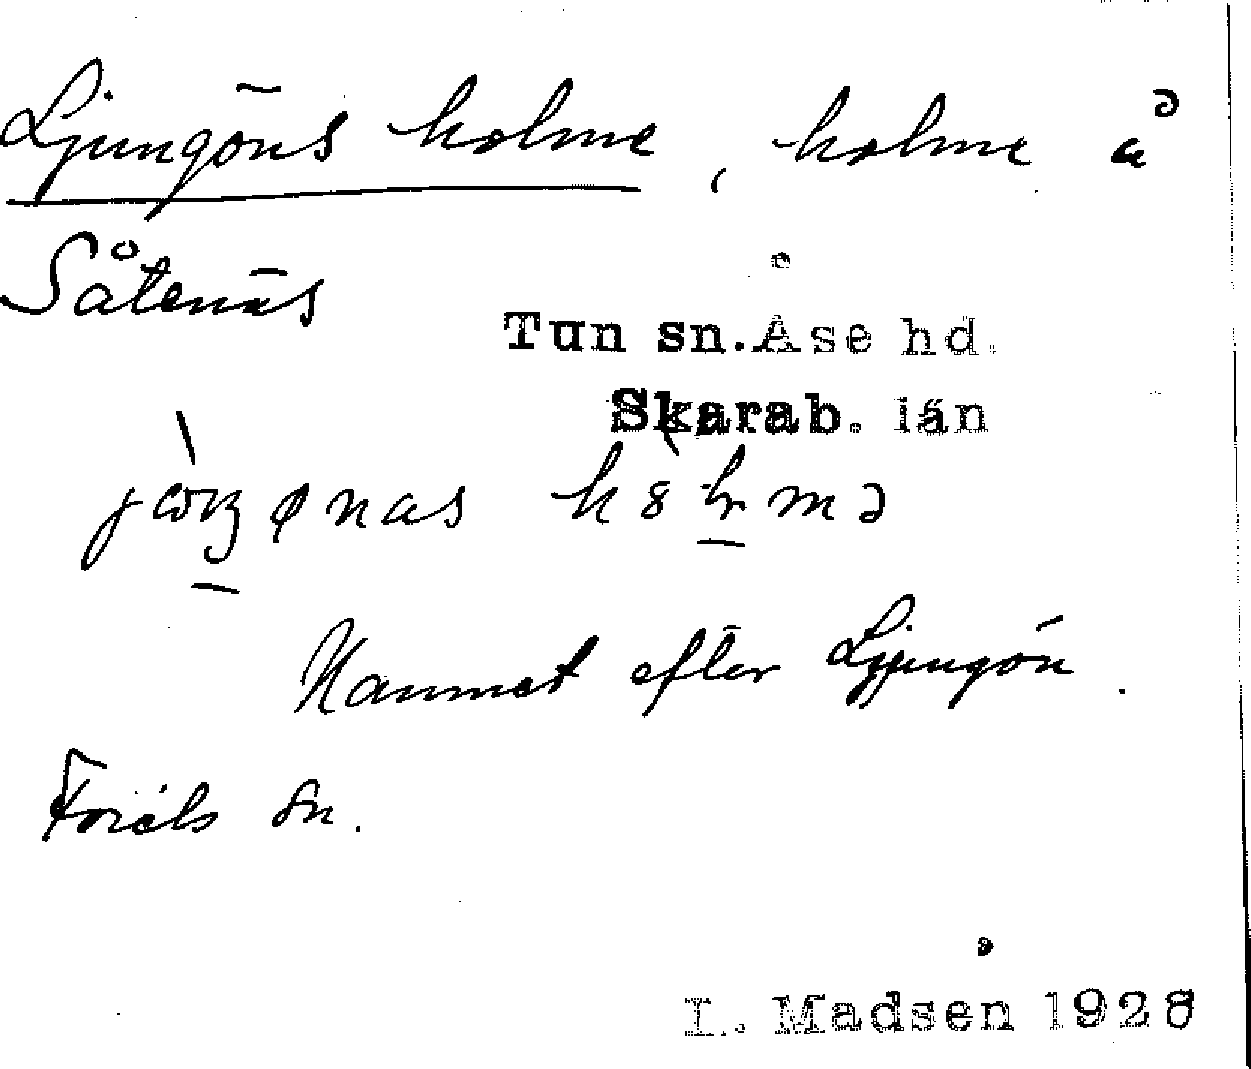 Ljungöns holme, holme å
Såtenäs
Tun sn. Åse hd.
Skarab. län
Namnet efter Ljungön.
Friels sn.
I. Madsen 1928